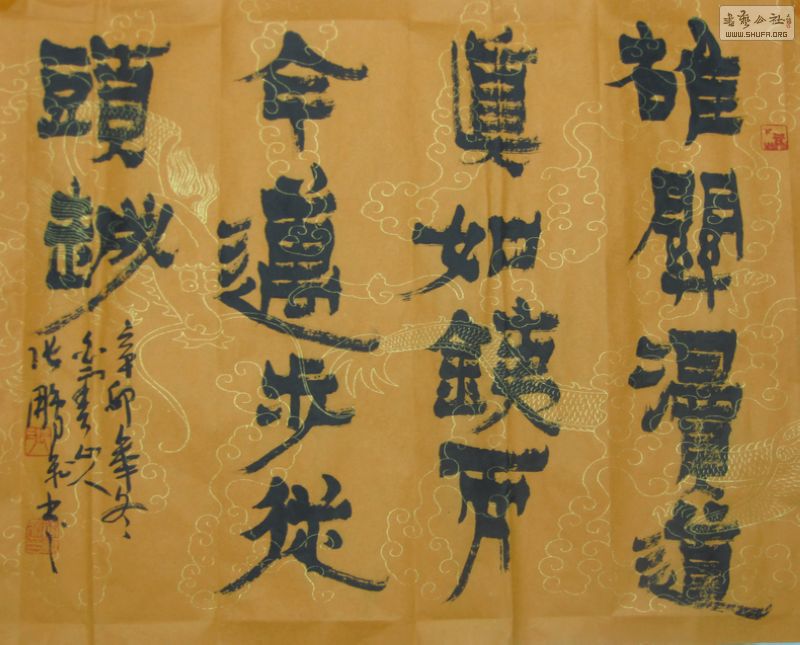 雄關漫道
真如鐵而
今邁步從
頭越
辛卯年冬
山人
張鵬書
書藝公社
WWW.SHUFA.ORG